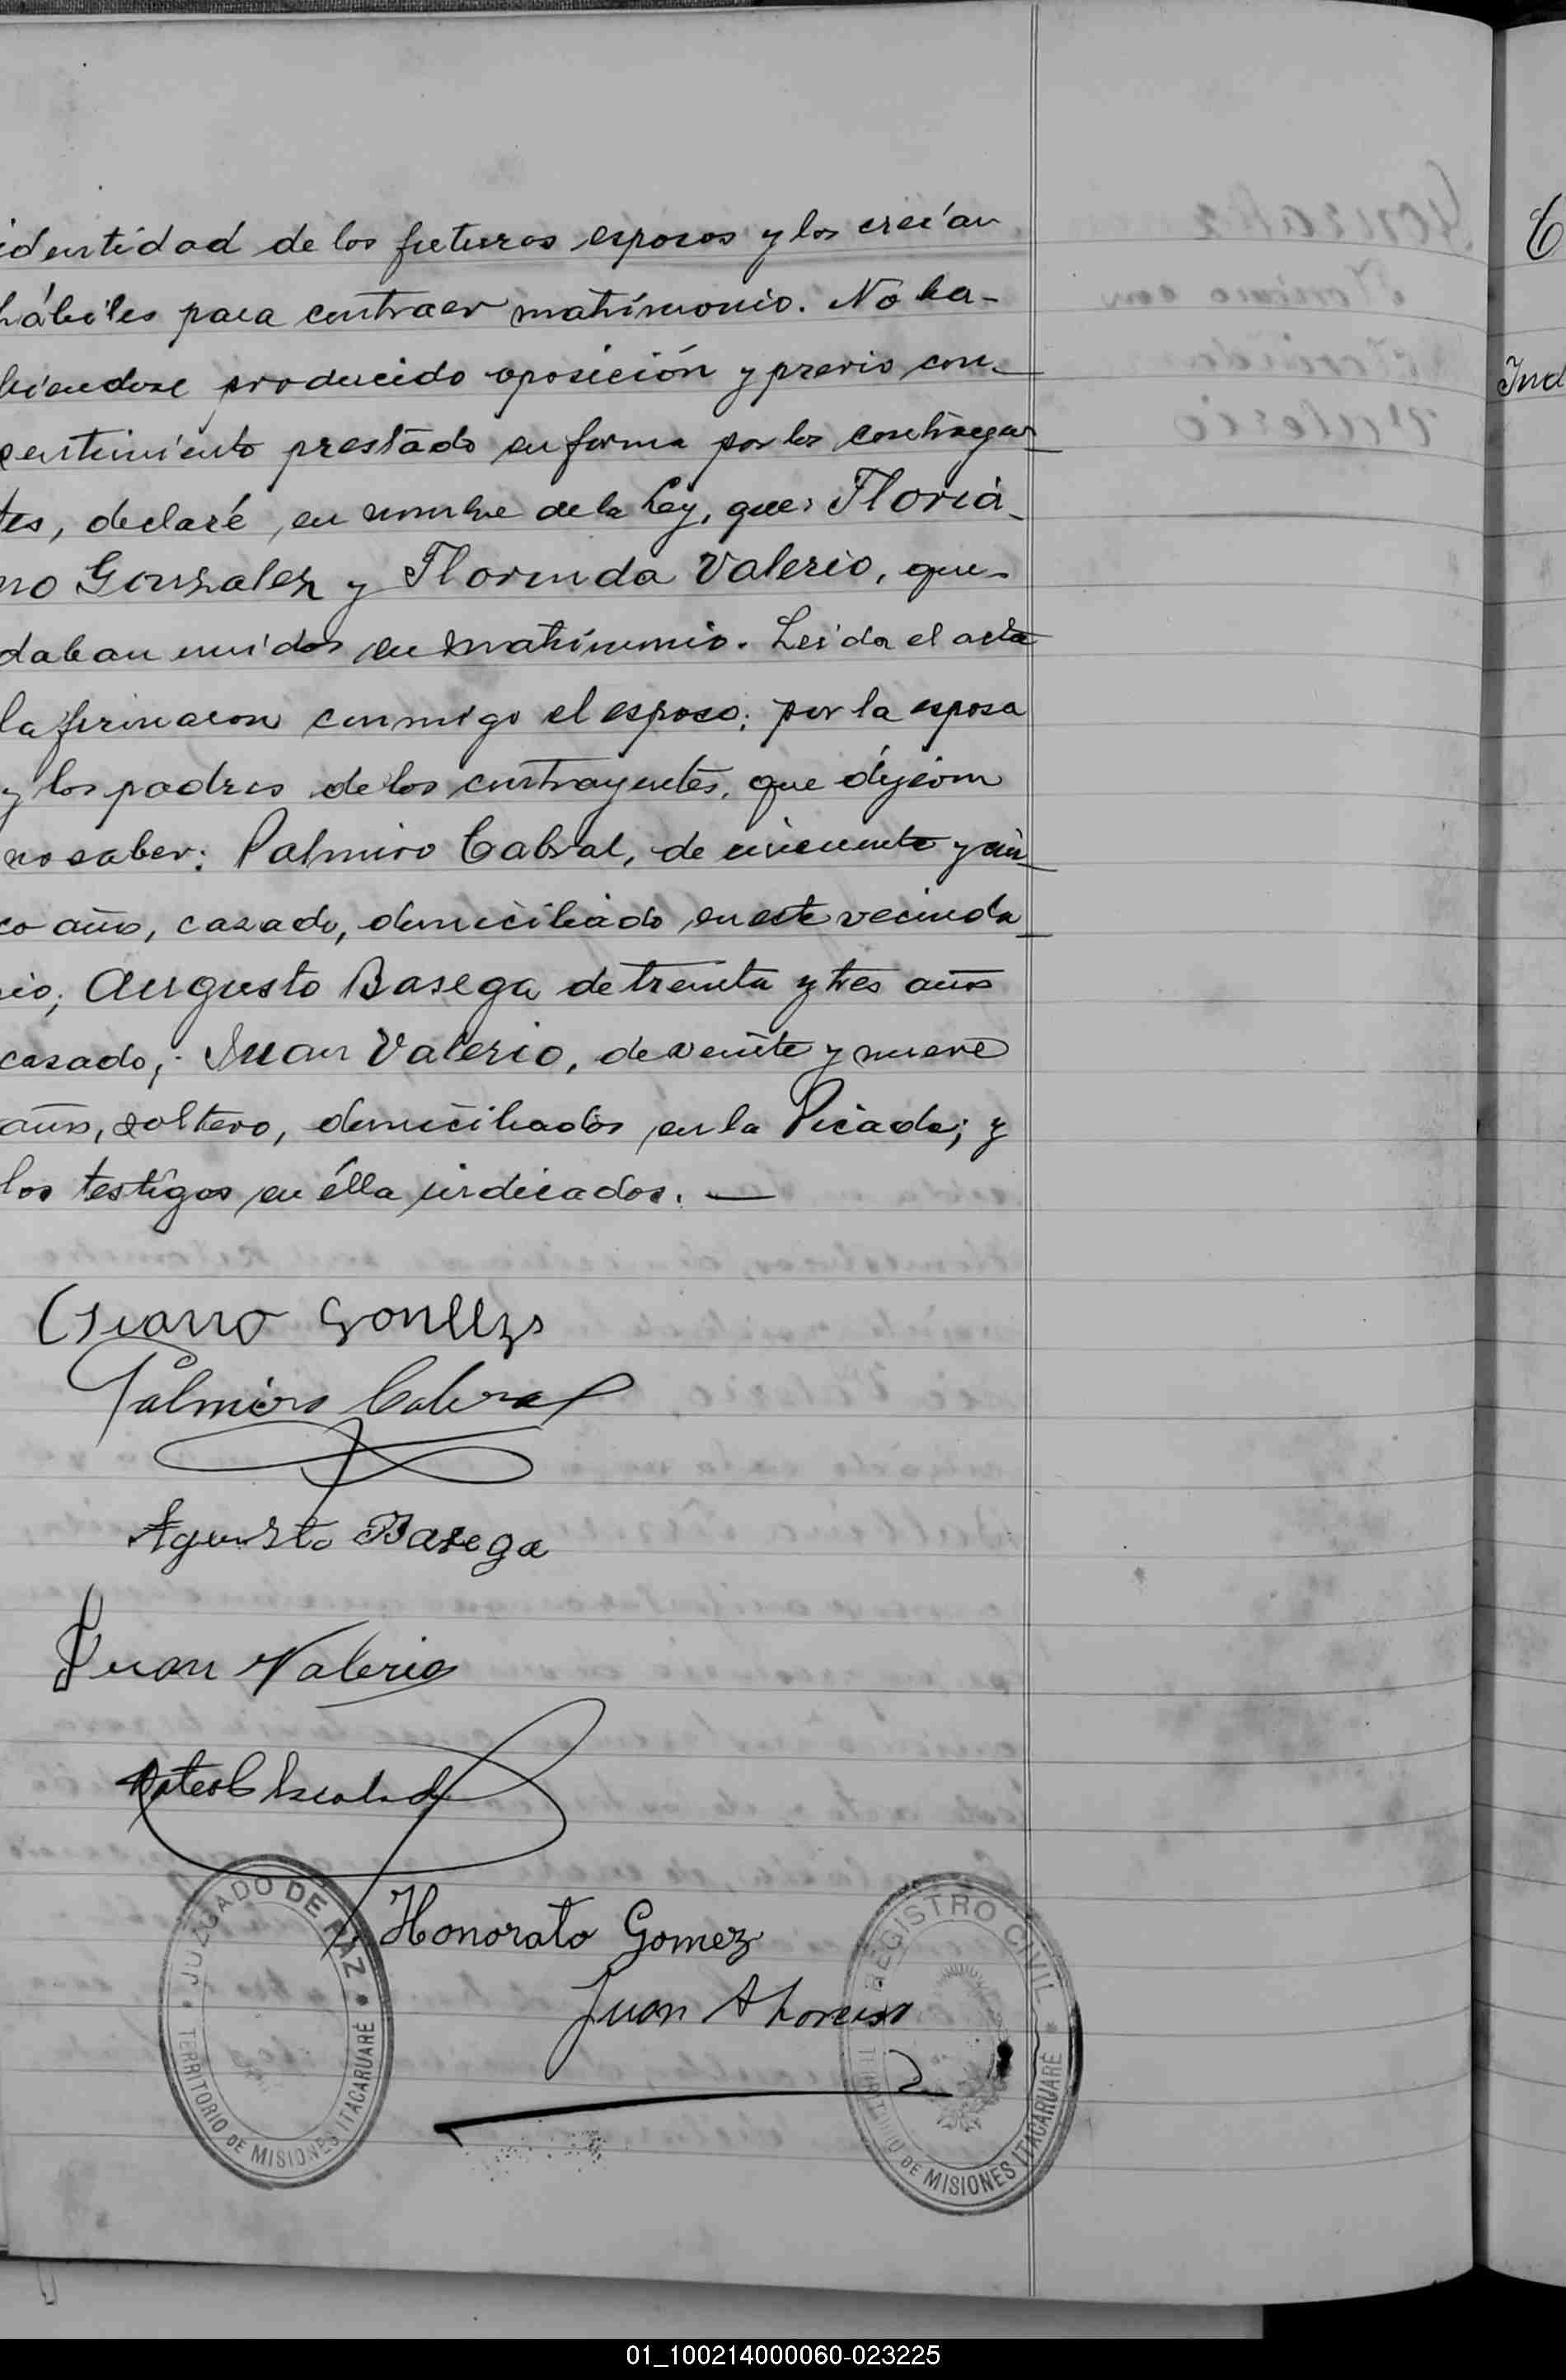 identidad de los futuros esposos y los creían
hábiles para contraer matrimonio. No ha-
biendose producido oposición y previo con-
sentimiento prestado en forma por los contrayen-
tes, declaré, en nombre de la Ley, que: Floria-
no Gonzalez y Florinda Valerio, que-
daban unidos en matrimonio. Leida el acta
la firmaron conmigo el esposo; por la esposa
y los padres de los contrayentes, que dijeron
no saber: Palmiro Cabral, de cincuenta y cin-
co años, casado, domiciliado en este vecinda-
rio; Augusto Basega de treinta y tres años
casado; Juan Valerio, de veinte y nueve
años, soltero, domiciliados en la Picada; y
los testigos en élla indicados. —
Palmiro Cabral
Agusto Basega
Juan Valerio
Honorato Gomez
Juan A
JUZGADO DE PAZ
TERRITORIO DE MISIONES ITACARUARÉ
REGISTRO CIVIL
TERRITORIO DE MISIONES ITACARUARÉ
Gonzalez
Floriano con
Florinda
Valerio
C
Ind
01_100214000060-023225